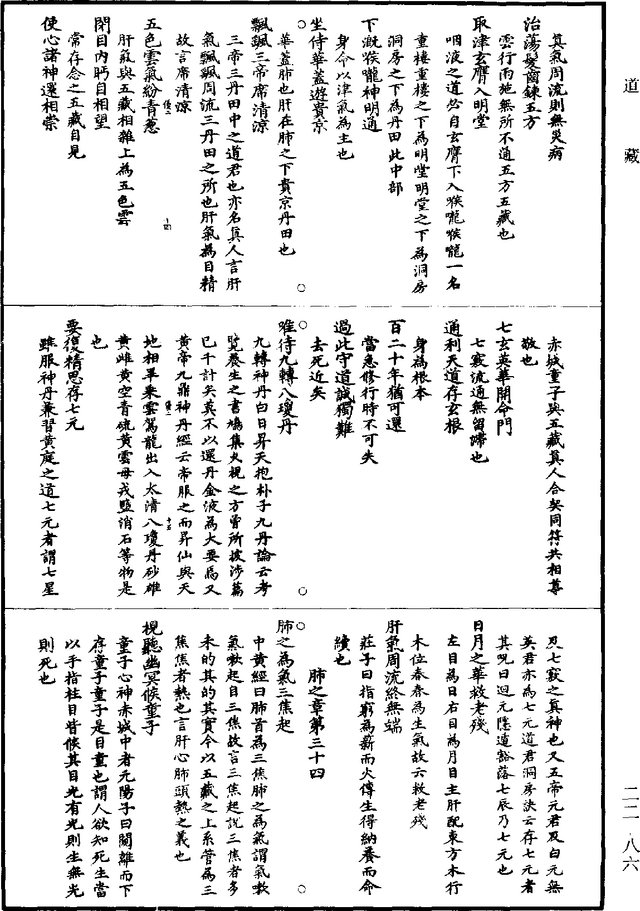 道藏
二二 八六
真氣周流則無災病
治蕩髮齒鍊五方
雲行雨施無所不通五方五藏也
取津玄膺入明堂
咽液之道必自玄膺下入喉嚨喉嚨一名
重樓重樓之下為明堂明堂之下為洞房
洞房之下為丹田此中部
下溉喉嚨神明通
身今以津氣為主也
坐侍華蓋遊貴京
華蓋肺也肝在肺之下貴京丹田也
飄颻三帝席清涼
三帝三丹田中之道君也亦名真人言肝
氣飄颻周流三丹田之所也肝氣為目精
故言席清涼
五色雲氣紛青葱
肝氣與五藏相雜上為五色雲
閉目內眄自相望
常存念之五藏自見
使心諸神還相崇
赤城童子與五藏真人合契同符共相尊
敬也
七玄英華開命門
七竅流通無留滯也
通利天道存玄根
身為根本
百二十年猶可還
當急修行時不可失
過此守道誠獨難
去死近矣
唯待九轉八瓊丹
九轉神丹白日昇天抱朴子九丹論云考
覽養生之書鳩集久視之方曾所披涉篇
已千計矣莫不以還丹金液為大要焉又
黃帝九鼎神丹經云帝服之而昇仙與天
地相畢乘雲駕龍出入太清八瓊丹砂雄
黃雌黃空青硫黃雲母戎鹽消石等物是
也
要復精思存七元
雖服神丹兼習黃庭之道七元者謂七星
及七竅之真神也又五帝元君及白元無
英君亦為七元道君洞房訣云存七元者
其呪曰迴元隱遁豁落七辰乃七元也
日月之華救老殘
左目為日右目為月目主肝配東方木行
木位春春為生氣故云救老殘
肝氣周流終無端
莊子曰指窮為薪而火傳生得納養而命
續也
肺之章第三十四
肺之為氣三焦起
中黃經曰肺首為三焦肺之為氣謂氣嗽
氣嗽起自三焦故言三焦起說三焦者多
未的其的其實今以五藏之上系管為三
焦焦者熱也言肝心肺頭熱之義也
視聽幽冥候童子
童子心神赤城中者元陽子曰閭離而下
存童子童子是目童也謂人欲知死生當
以手指柱目眥候其目光有光則生無光
則死也